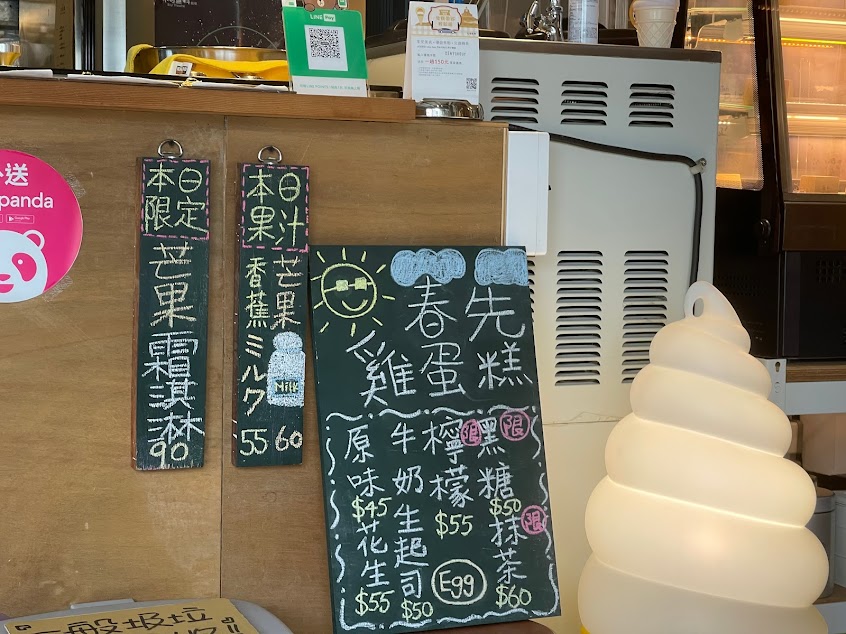 LINE Pay
送
panda
本日
限定
芒果霜淇淋
90
本日
果汁
芒果
60
香蕉ミルク
55
Milk
春先
雞蛋糕
原味
$45
花生
$55
牛奶生起司
$50
檸檬
限
$55
Egg
黑糖
限
$50
抹茶
限
$60
一般垃圾